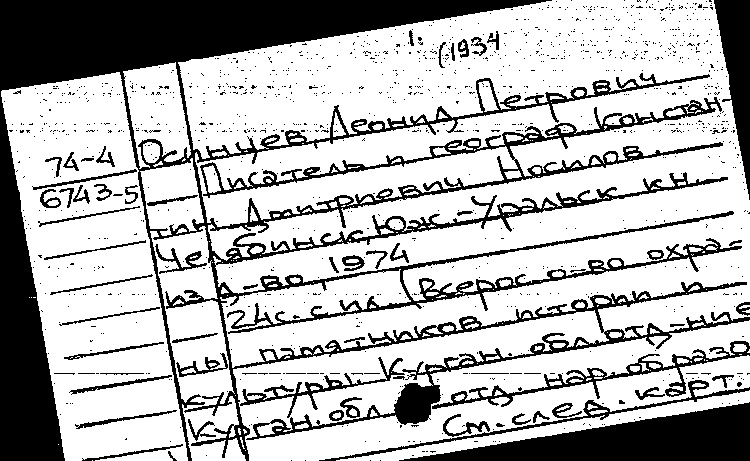 1. (1934
Осинцев, Леонид Петрович
74-4
6743-5
Писатель и географ Констан-
тин Дмитриевич Носилов.
Челябинск, Юж.-Уральск кн.
изд-во, 1974
24с. с ил. (Всерос о-во охра-
ны памятников истории и
культуры. Курган. обл. отд-ние
Курган. обл отд. нар. образо
См. след. карт.